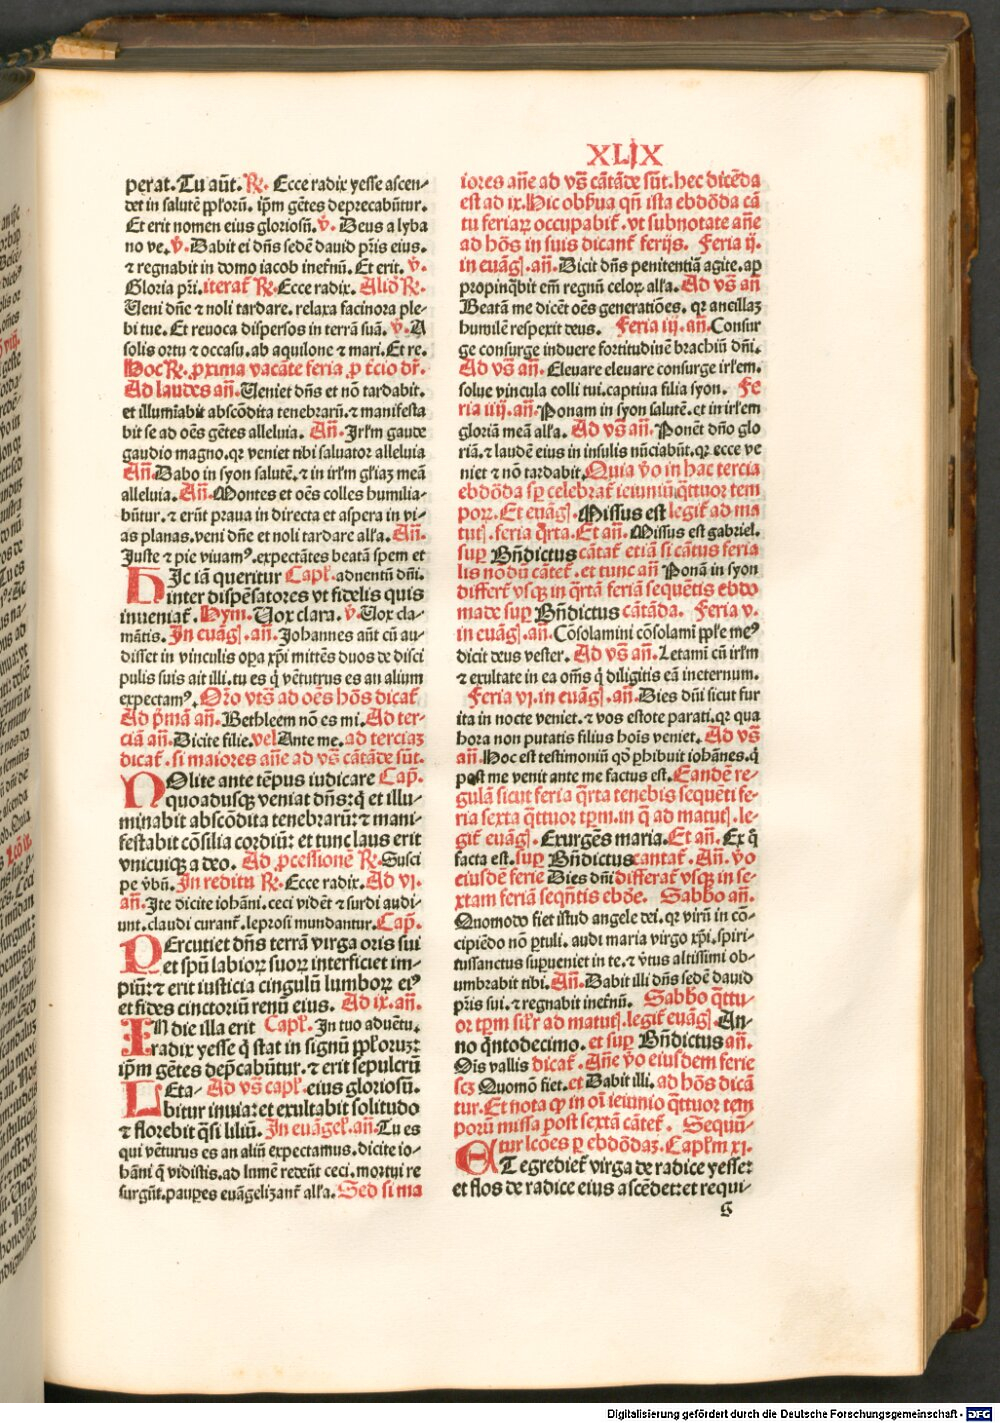 XLIX
perat. Tu aūt. R̄. Ecce radix yesse ascen-
det in salutē pp̄lorū. ip̄m gētes deprecabūtur.
Et erit nomen eius gloriosū. v̄. Deus a lyba
no ve. v̄. Dabit ei dn̄s sedē dauid pr̄is eius.
⁊ regnabit in domo iacob inet̄nū. Et erit. v̄.
Gloria pr̄i. iterat̄ R̄. Ecce radix. Aliō R̄.
Ueni dn̄e ⁊ noli tardare. relaxa facinora ple-
bi tue. Et reuoca dispersos in terrā suā. v̄. A
solis ortu ⁊ occasu. ab aquilone ⁊ mari. Et re.
Hoc R̄. ꝓxima vacāte feria ꝓ t̄cio dr̄.
Ad laudes an̄. Ueniet dn̄s et nō tardabit.
et illumīabit abscōdita tenebrarū. ⁊ manifesta
bit se ad oēs gētes alleluia. An̄. Jrl̄m gaude
gaudio magno. qr veniet tibi saluator alleluia
An̄ Dabo in syon salutē. ⁊ in irl̄m gl̄iaꝫ meā
alleluia. An̄. Montes et oēs colles humilia-
būtur. ⁊ erūt praua in directa et aspera in vi-
as planas. veni dn̄e et noli tardare all̄a. An̄.
Juste ⁊ pie viuamꝰ. expectātes beatā spem et
HJc iā queritur Capl̄. aduentū dn̄i.
inter dispēsatores vt fidelis quis
inueniat̄. Hym. Uox clara. v̄. Uox cla-
mātis. Jn euāḡl. an̄. Johannes aūt cū au-
disset in vinculis oꝑa xp̄i mittēs duos de disci
pulis suis ait illi. tu es q̄ vētutrus es an alium
expectamꝰ. Or̄o vt s̄ ad oēs hōs dicat̄
Ad p̄mā an̄. Bethleem nō es mi. Ad ter-
ciā an̄. Dicite filie. vel Ante me. ad terciaꝫ
dicat̄. si maiores an̄e ad vs̄ cātāde sūt.
NOlite ante tēpus iudicare Cap̄.
quoadusqꝫ veniat dn̄s: q̄ et illu-
minabit abscōdita tenebrarū: ⁊ mani-
festabit cōsilia cordiū: et tunc laus erit
vnicuiqꝫ a deo. Ad ꝓcessionē R̄. Susci
pe v̄bū. Jn reditu R̄. Ecce radix. Ad vi.
an̄. Jte dicite iohāni. ceci vidēt ⁊ surdi audi-
unt. claudi curant̄. leprosi mundantur. Cap̄.
PErcutiet dn̄s terrā virga oris sui
et spū labioꝝ suoꝝ interficiet im-
piū: ⁊ erit iusticia cingulū lumboꝝ eiꝰ
et fides cinctoriū renū eius. Ad ix. an̄.
IN die illa erit Capl̄. Jn tuo aduētu.
radix yesse q̄ stat in signū pp̄loruꝫ:
ip̄m gētes dep̄cabūtur. ⁊ erit sepulcrū
LEta- Ad vs̄ capl̄. eius gloriosū.
bitur inuia: et exultabit solitudo
⁊ florebit q̄si liliū. Jn euāgel̄. an̄. Tu es
qui vēturus es an aliū expectamus. dicite io-
hāni q̄ vidistis. ad lumē redeūt ceci. mortui re
surgūt. pauꝑes euāgelizant̄ all̄a. Sed si ma
iores an̄e ad vs̄ cātāde sūt. hec dicēda
est ad ix. Hic obẜua qn̄ ista ebdōda cā
tu feriaꝝ occupabit̄. vt subnotate an̄e
ad hōs in suis dicant̄ ferijs. Feria ij.
in euāḡl. an̄. Dicit dn̄s penitentiā agite. ap
propinq̄bit em̄ regnū celoꝝ all̄a. Ad vs̄ an̄
Beatā me dicēt oēs generatiōes. qr ancillaꝫ
humilē respexit deus. Feria iij. an̄. Consur
ge consurge induere fortitudinē brachiū dn̄i.
Ad vs̄ an̄. Eleuare eleuare consurge irl̄em.
solue vincula colli tui. captiua filia syon. Fe
ria iiij. an̄. Ponam in syon salutē. et in irl̄em
gloriā meā all̄a. Ad vs̄ an̄. Ponēt dn̄o glo
riā. ⁊ laudē eius in insulis nūciabūt. qr ecce ve
niet ⁊ nō tardabit. Quia v̄o in hac tercia
ebdōda sꝑ celebrat̄ ieiuniū q̄ttuor tem
poꝝ. Et euāḡl. Missus est legit̄ ad ma
tut̄. feria q̄rta. Et an̄. Missus est gabriel.
suꝑ Bn̄dictus cātat̄ etiā si cātus feria
lis nōdū cātet̄. et tunc an̄ Ponā in syon
differt̄ vsqꝫ in q̄rtā feriā sequētis ebdo
made suꝑ Bn̄dictus cātāda. Feria v.
in euāḡl. an̄. Cōsolamini cōsolamī pp̄le meꝰ
dicit deus vester. Ad vs̄ an̄. Letamī cū irl̄m
⁊ exultate in ea om̄s q̄ diligitis eā ineternum.
Feria vi. in euāḡl. an̄. Dies dn̄i sicut fur
ita in nocte veniet. ⁊ vos estote parati. qr qua
hora non putatis filius hoīs veniet. Ad vs̄
an̄. Hoc est testimoniū qd̄ ꝑhibuit iohānes. q̄
post me venit ante me factus est. Eandē re-
gulā sicut feria q̄rta tenebis sequēti fe-
ria sexta q̄ttuor tꝑm. in q̄ ad matut̄. le-
git̄ euāḡl. Exurgēs maria. Et an̄. Ex q̄
facta est. suꝑ Bn̄dictus cantat̄. An̄. v̄o
eiusdē ferie Dies dn̄i differat̄ vsqꝫ in se-
xtam feriā seqn̄tis ebde. Sabb̄o an̄.
Quomodo fiet istud angele dei. qr virū in cō-
cipiēdo nō ꝑtuli. audi maria virgo xp̄i. spiri-
tussanctus suꝑueniet in te. ⁊ v̄tus altissimi ob-
umbrabit tibi. An̄. Dabit illi dn̄s sedē dauid
pr̄is sui. ⁊ regnabit inet̄nū. Sabb̄o q̄ttu-
or tꝑm sil̄r ad matut̄. legit̄ euāḡl. An-
no q̄ntodecimo. et suꝑ Bn̄dictus an̄.
Ois vallis dicat̄. An̄e v̄o eiusdem ferie
scꝫ Quomō fiet. et Dabit illi. ad hōs dicā
tur. Et nota ꝙ in oī ieiunio q̄ttuor tem
porū missa post sextā cātet̄. Sequū-
tur lcōes ꝑ ebdōdaꝫ. Capl̄m xi.
ET egrediet̄ virga de radice yesse:
et flos de radice eius ascēdet: et requi-
g
Digitalisierung gefördert durch die Deutsche Forschungsgemeinschaft - DFG